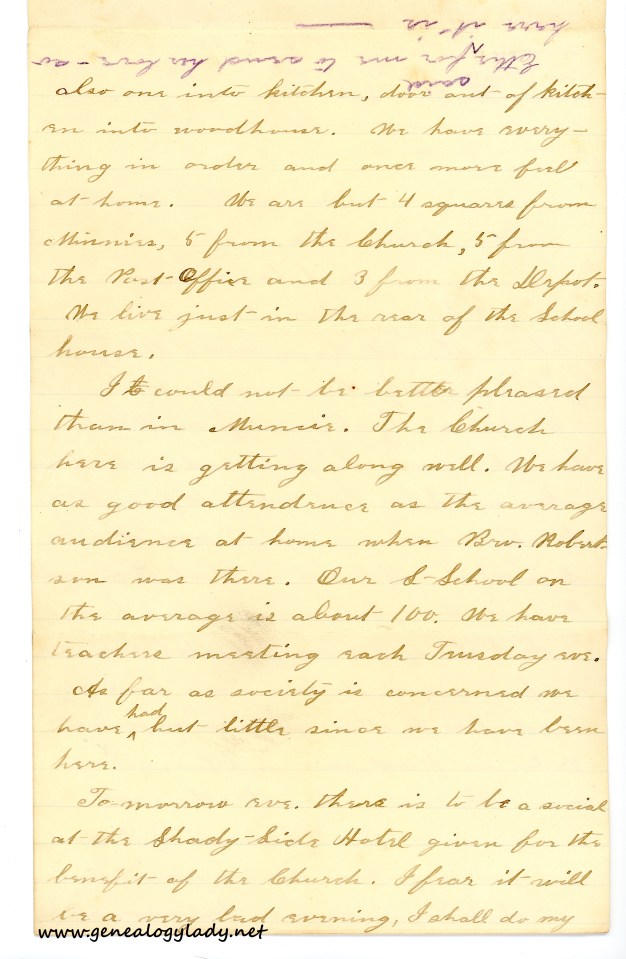 also one into kitchen, door out of kitch-
en into woodhouse. We have every-
thing in order and once more feel
at home. We are but 4 squares from
Minnies, 5 from the Church, 5 from
the Post-Office and 3 from the Depot.
We live just in the rear of the School
house.
I could not be better pleased
than in Muncie. The Church
here is getting along well. We have
as good attendence as the average
audience at home when Bro. Robert-
son was there. Our S-School on
the average is about 100. We have
teachers meeting each Tuesday eve.
As far as society is concerned we
have had but little since we have been
here.
To-morrow eve. there is to be a social
at the Shady-Side Hotel given for the
benefit of the Church. I fear it will
be a very bad evening, I shall do my
here it is
letter for me to send her love - so
said
www.genealogylady.net